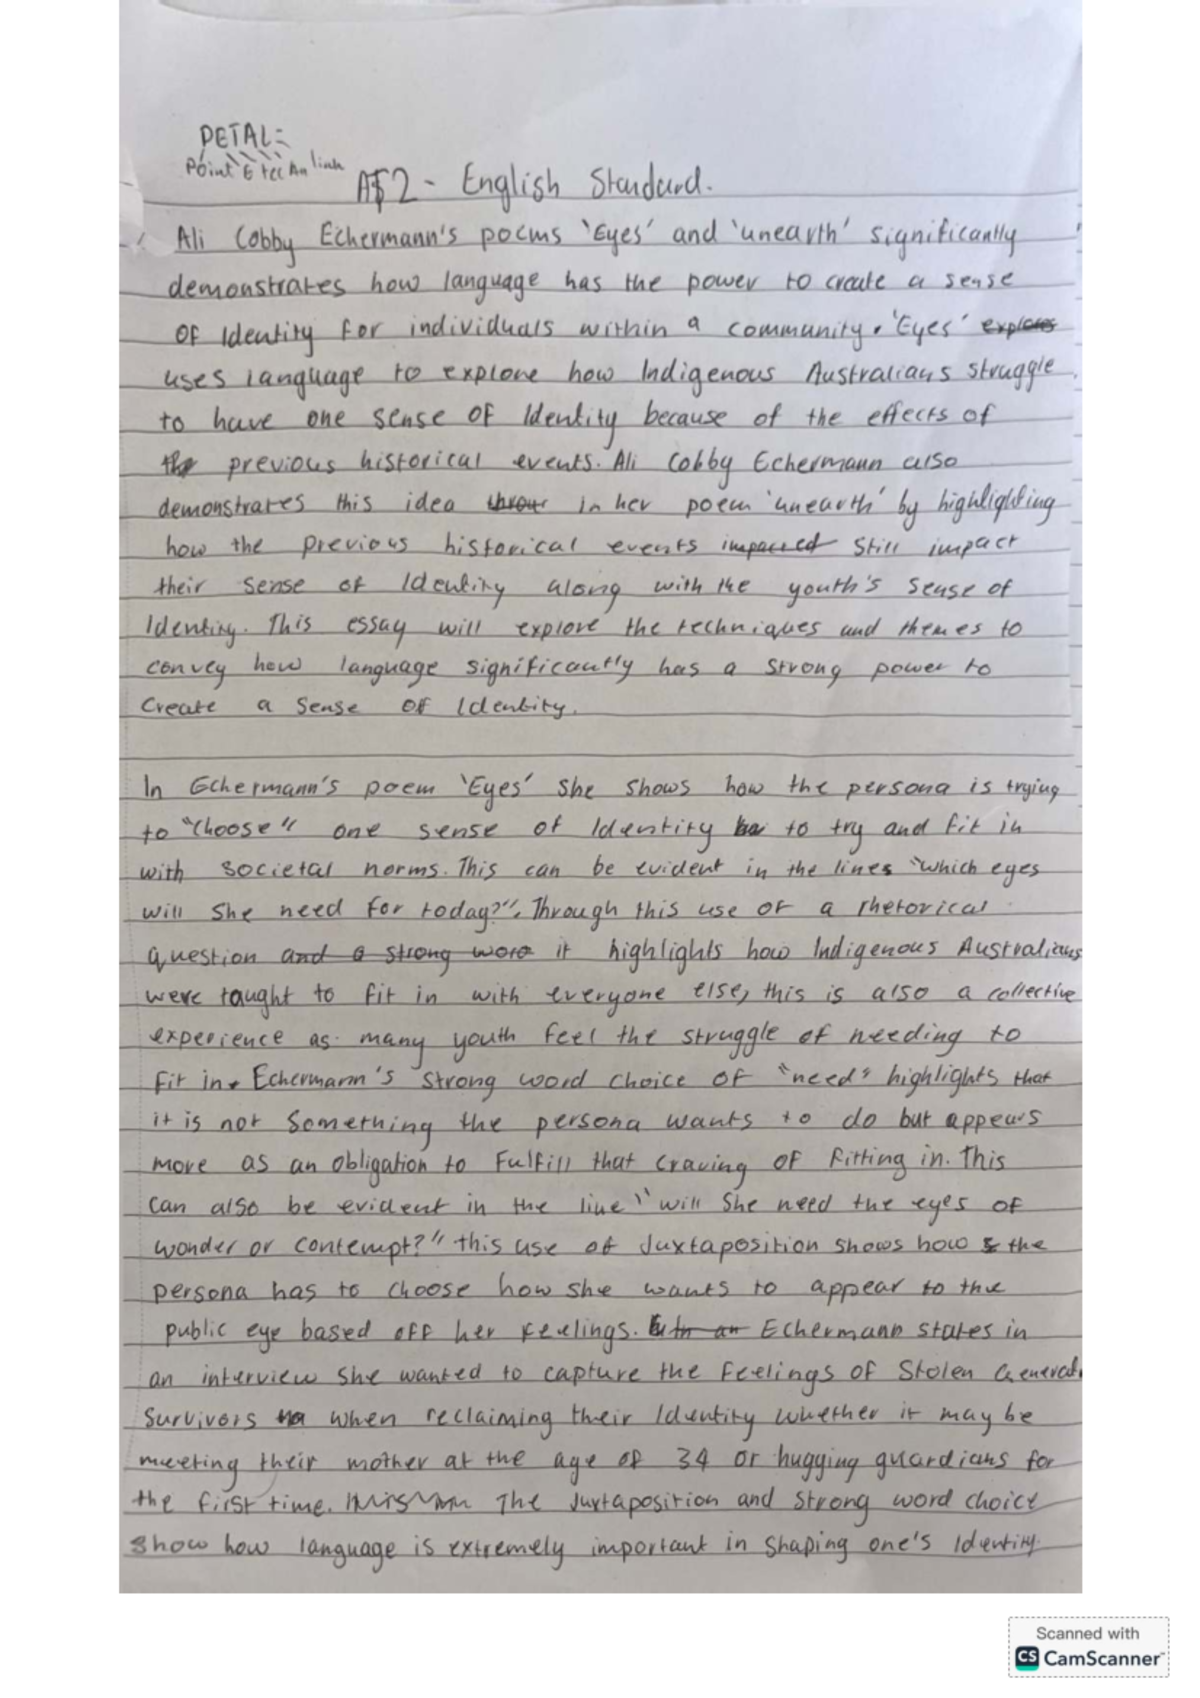 PETAL:
Point E tec An link
AT2 - English Standard.
Ali Cobby Echermann's poems 'Eyes' and 'unearth' significantly
demonstrates how language has the power to create a sense
of Identity for individuals within a community. 'Eyes' explores
uses language to explore how Indigenous Australians struggle
to have one sense of Identity because of the effects of
the previous historical events. Ali Cobby Echermann also
demonstrates this idea throu in her poem 'unearth' by highlighting
how the previous historical events impacted still impact
their sense of Identity along with the youth's sense of
Identity. This essay will explore the techniques and themes to
convey how language significantly has a strong power to
Create a Sense of Identity.
In Echermann's poem 'Eyes' she shows how the persona is trying
to "Choose" one sense of Identity to try and fit in
with societal norms. This can be evident in the lines "which eyes
will she need for today?". Through this use of a rhetorical
question and a strong word it highlights how Indigenous Australians
were taught to fit in with everyone else, this is also a collective
experience as many youth feel the struggle of needing to
fit in. Echermann's strong word choice of "need" highlights that
it is not something the persona wants to do but appears
more as an obligation to fulfill that craving of fitting in. This
can also be evident in the line "will she need the eyes of
wonder or contempt?" this use of Juxtaposition shows how the
persona has to choose how she wants to appear to the
public eye based off her feelings. Echermann states in
an interview she wanted to capture the feelings of Stolen Generati
Survivors when reclaiming their Identity whether it may be
meeting their mother at the age of 34 or hugging guardians for
the first time. The Juxtaposition and strong word choice
show how language is extremely important in shaping one's Identity.
Scanned with
CS CamScanner